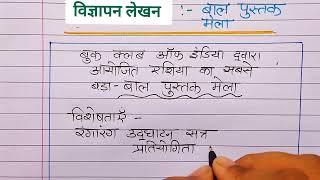 विज्ञापन लेखन :- बाल पुस्तक
मेला
बुक क्लब ऑफ इंडिया द्वारा
आयोजित एशिया का सबसे
बड़ा - बाल पुस्तक मेला
विशेषताएँ -
रंगारंग उद्घाटन सत्र
प्रतियोगिता